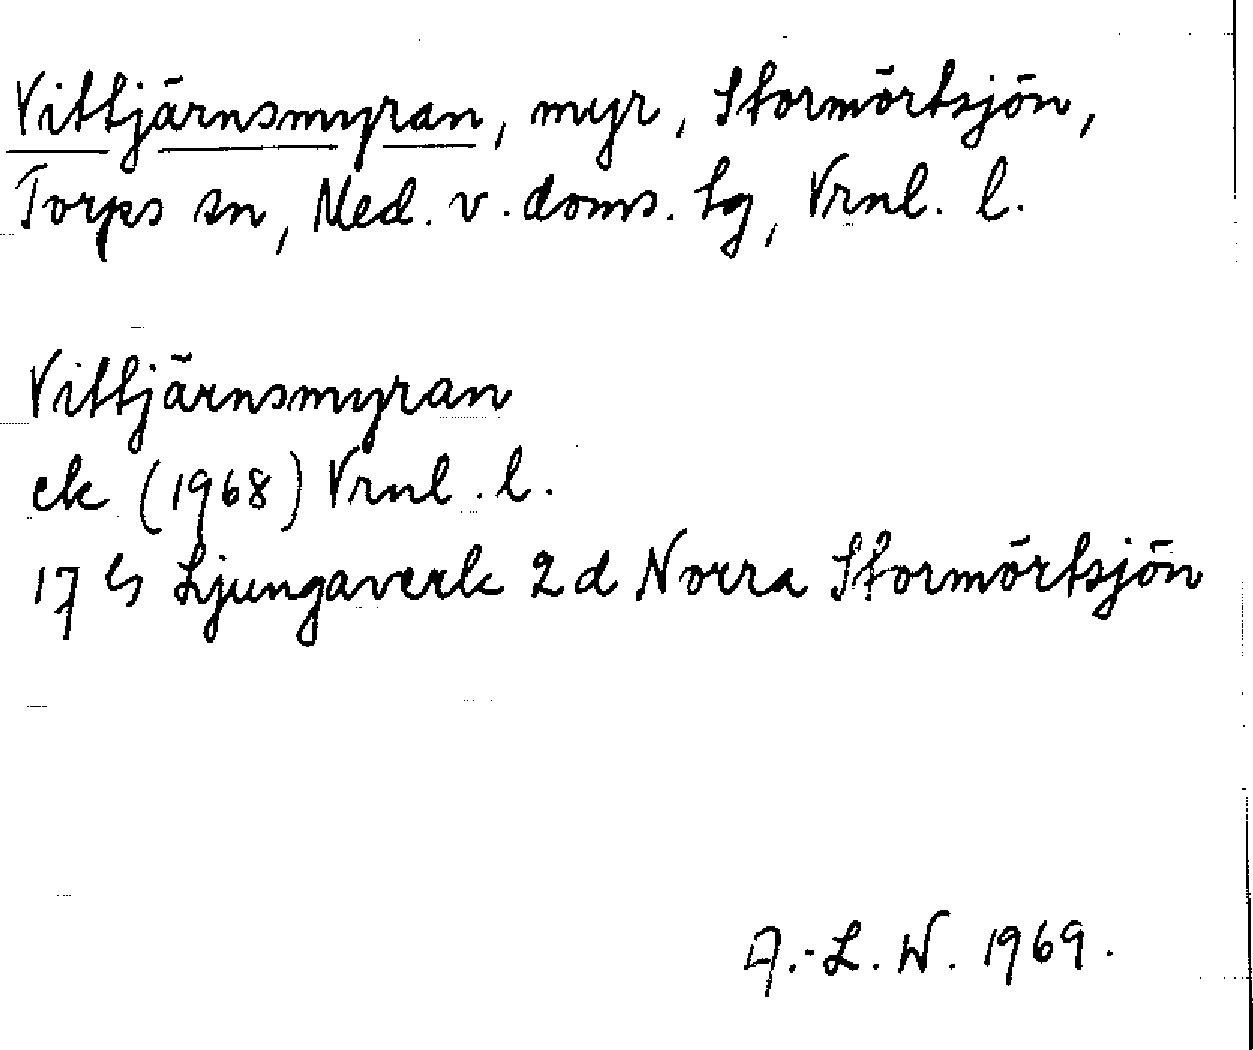 Vittjärnsmyran, myr, Stormörtsjön,
Torps sn, Med. v. doms. tg, Vrnl. l.
Vittjärnsmyran
ek (1968) Vrnl. l.
17 G Ljungaverk 2d Norra Stormörtsjön
A.-L. W. 1969.